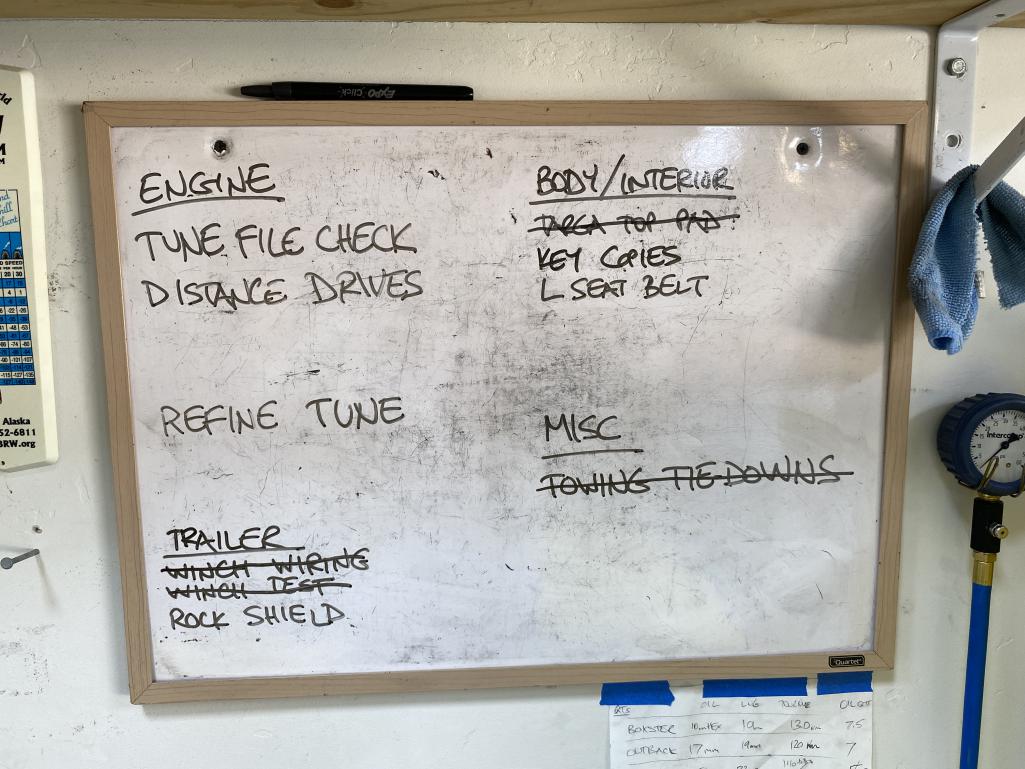 EXPO Click
ENGINE
TUNE FILE CHECK
DISTANCE DRIVES
REFINE TUNE
TRAILER
WINCH WIRING
WINCH TEST
ROCK SHIELD
BODY/INTERIOR
TARGA TOP PAD
KEY COPIES
L SEAT BELT
MISC
TOWING TIE-DOWNS
Quartet
OIL LUG TORQUE
BOXSTER 19mm 130nm 7.5
OUTBACK 17mm 19mm 120nm 7
Alaska
52-6811
BRW.org
Intercomp